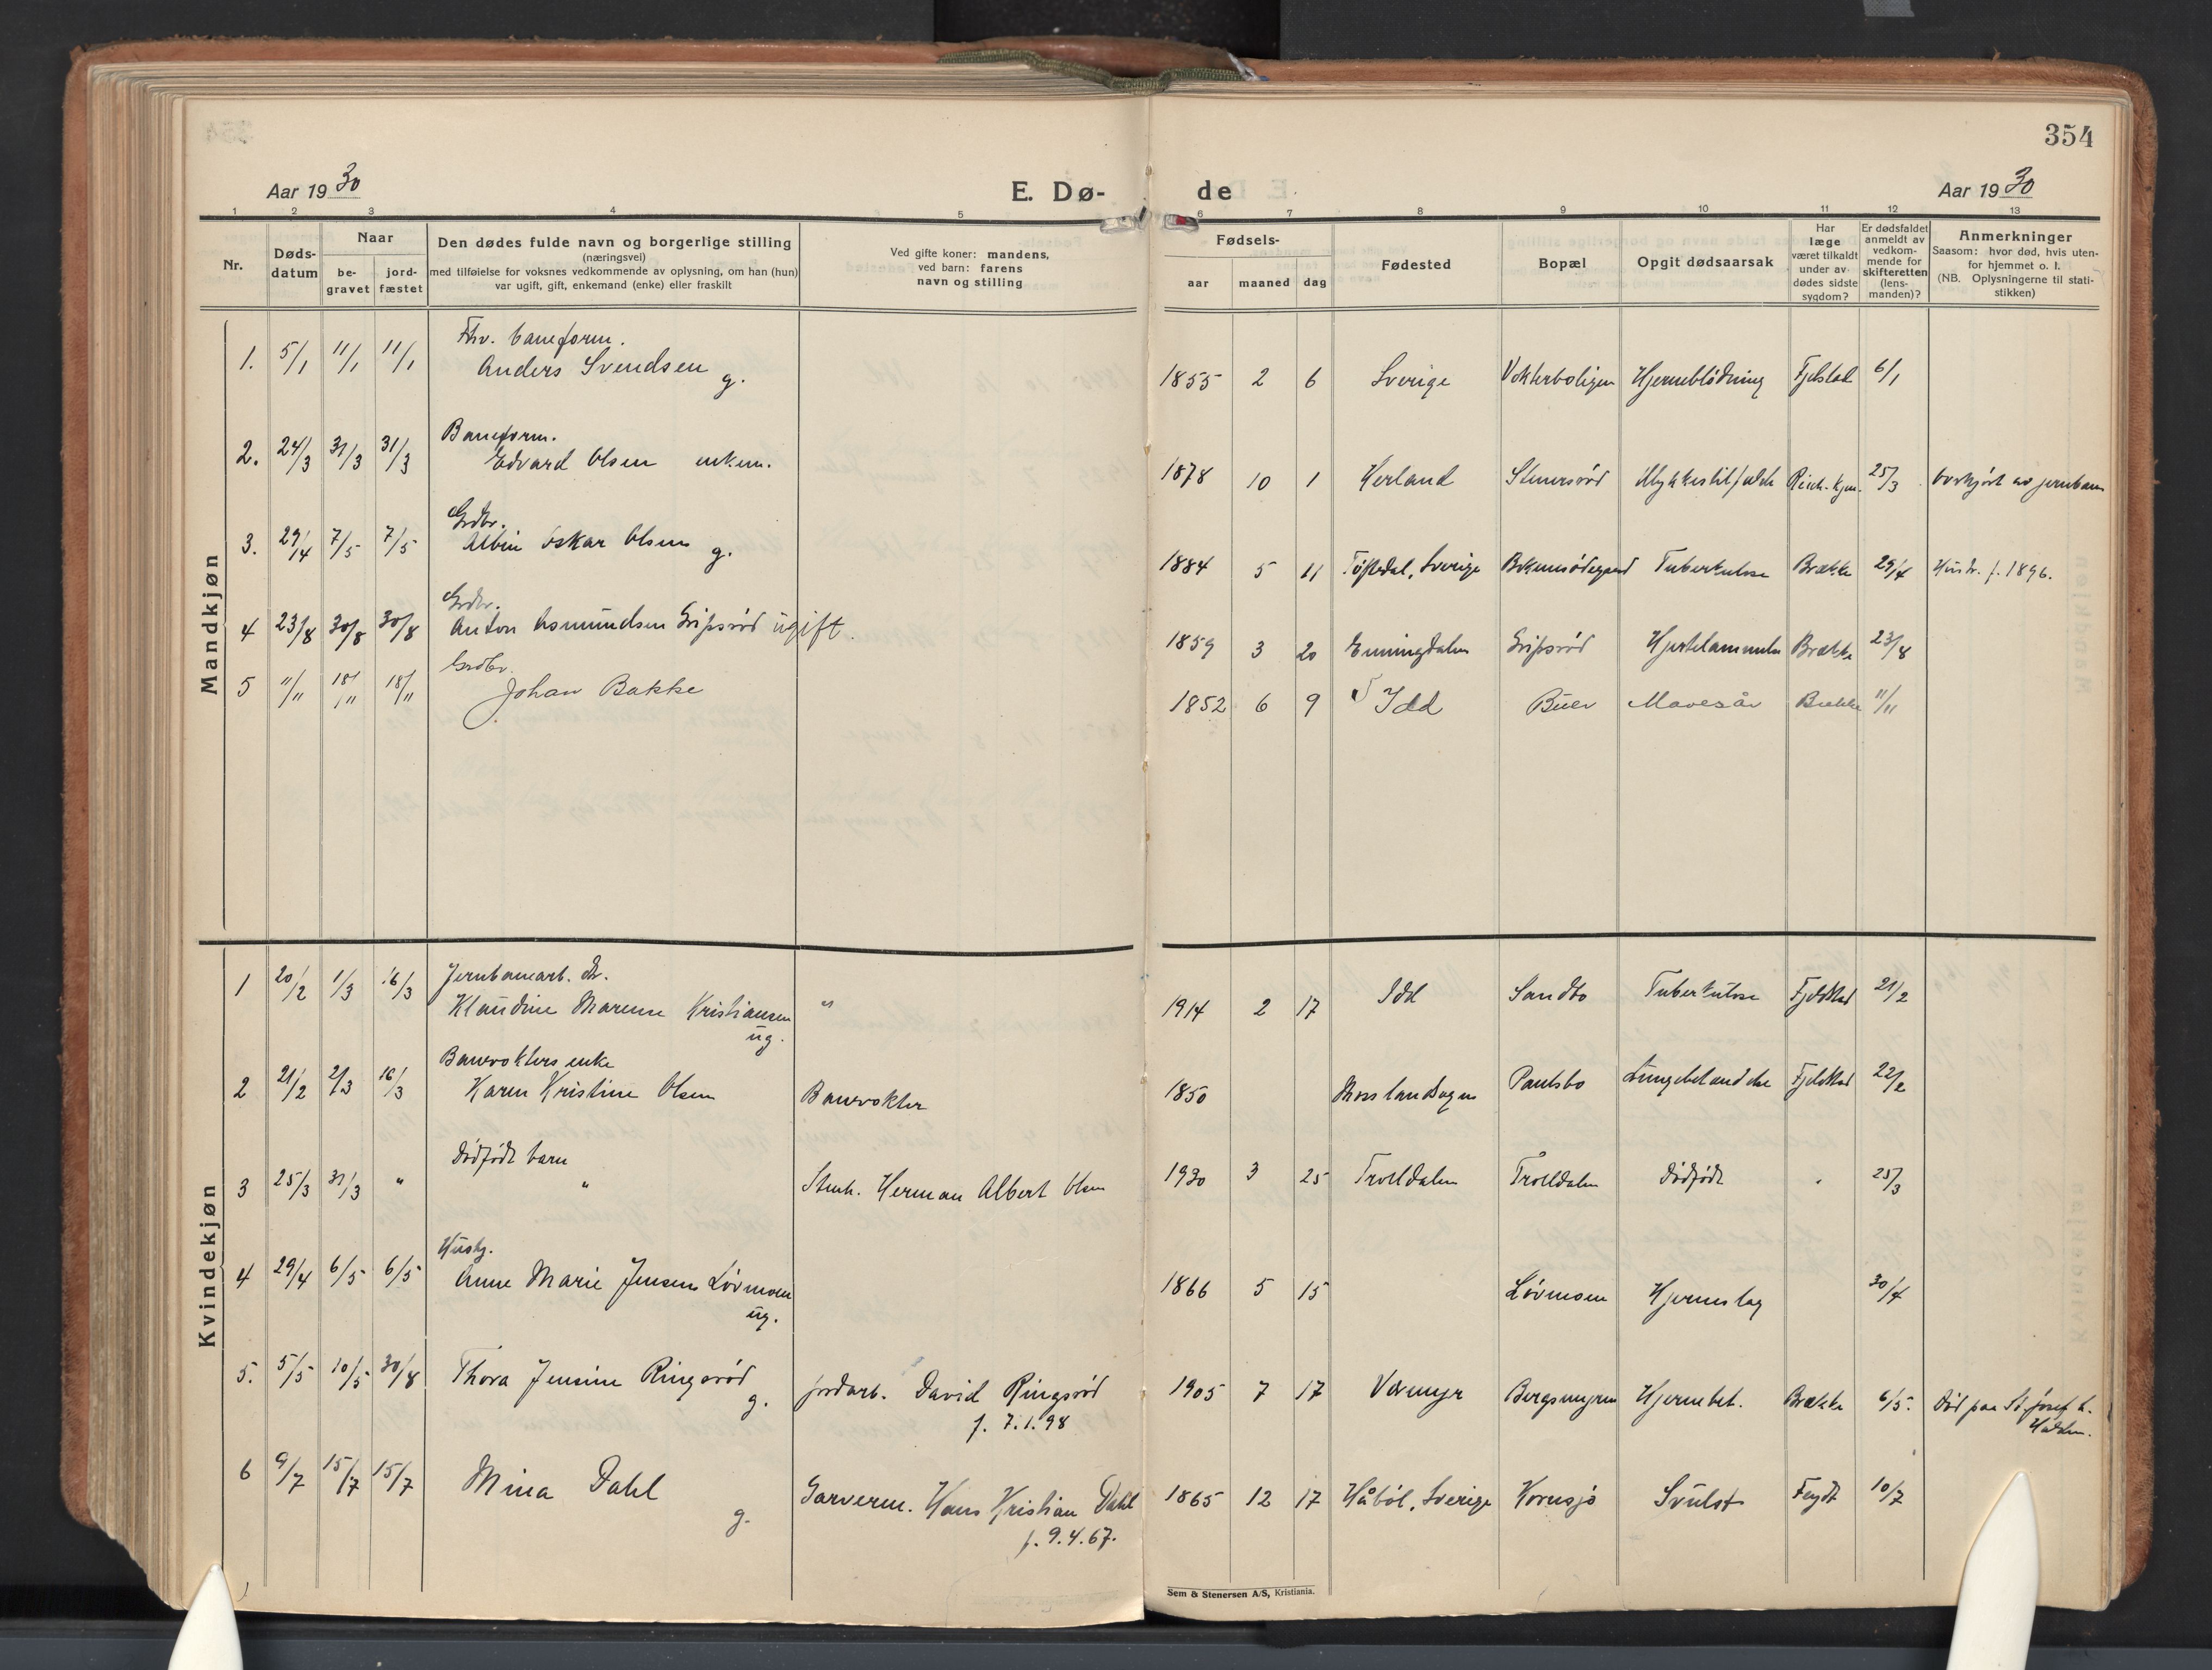 354
Aar 1930
E. Dø-
de
Aar 1930
1 2 3 4 5 6 7 8 9 10 11 12 13
Nr.
Døds-
datum
Naar
be-
gravet
jord-
fæstet
Den dødes fulde navn og borgerlige stilling
(næringsvei)
med tilføielse for voksnes vedkommende av oplysning, om han (hun)
var ugift, gift, enkemand (enke) eller fraskilt
Ved gifte koner: mandens,
ved barn: farens
navn og stilling
Fødsels-
aar maaned dag
Fødested
Bopæl
Opgit dødsaarsak
Har
læge
været tilkaldt
under av-
dødes sidste
sygdom?
Er dødsfaldet
anmeldt av
vedkom-
mende for
skifteretten
(lens-
manden)?
Anmerkninger
Saasom: hvor død, hvis uten-
for hjemmet o. l.
(NB. Oplysningerne til stati-
stikken)
Mandkjøn
Fhv. baneform.
1. 5/1 11/1 11/1 Anders Svendsen g. 1855 2 6 Sverige Vokterboligen Hjerneblødning Fjelstad 6/1
Baneform.
2. 24/3 31/3 31/3 Edvard Olsen enkem. 1878 10 1 Herland Stenersrød Ulykkestilfælde 25/3 Overkjørt av jernbane
Grdbr.
3. 29/4 7/5 7/5 Albin Oskar Olsen g. 1884 5 11 Töftedal, Sverige Tuberkulose Brække 29/4 Hustr. f. 1896.
Grdbr.
4 23/8 30/8 30/8 Anton Asmundsen Gripsrød ugift. 1859 3 20 Enningdalen Gripsrød Hjertelammelse Brække 23/8
Grdbr.
5 11/11 18/11 18/11 Johan Bakke 1852 6 9 Idd Buer Mavesår Brække 11/11
Kvindekjøn
Jernbanearb. Dr.
1 20/2 1/3 16/3 Klaudine Marense Kristiansen " 1914 2 17 Idd Sandbo Tuberkulose Fjeldstad 21/2
ug.
Banevokters enke
2 21/2 2/3 16/3 Karen Kristine Olsen Banevokter 1850 Mosslandsogn Paulsbo Lungebetændelse Fjeldstad 22/2
Dødfødt barn
3 25/3 31/3 " " Stenh. Herman Albert Olsen 1930 3 25 Trolldalen Trolldalen Dødfødt " 25/3
Hush.
4 29/4 6/5 6/5 Anne Marie Jensen Løvmoen 1866 5 15 Løvmoen Hjerneslag 30/4
ug.
5. 5/5 10/5 30/8 Thora Jensine Ringsrød g. jordarb. David Ringsrød 1905 7 17 Vormyr Bergsmyren Hjernebet. Brække 6/5. Død paa St. Josef h.
f. 7.1.98
Halden.
6 9/7 15/7 15/7 Mina Dahl g. Garverm. Hans Kristian Dahl 1865 12 17 Håböl, Sverige Kornsjø Svulst Feydt 10/7
f. 9.4.67.
Sem & Stenersen A/S, Kristiania.